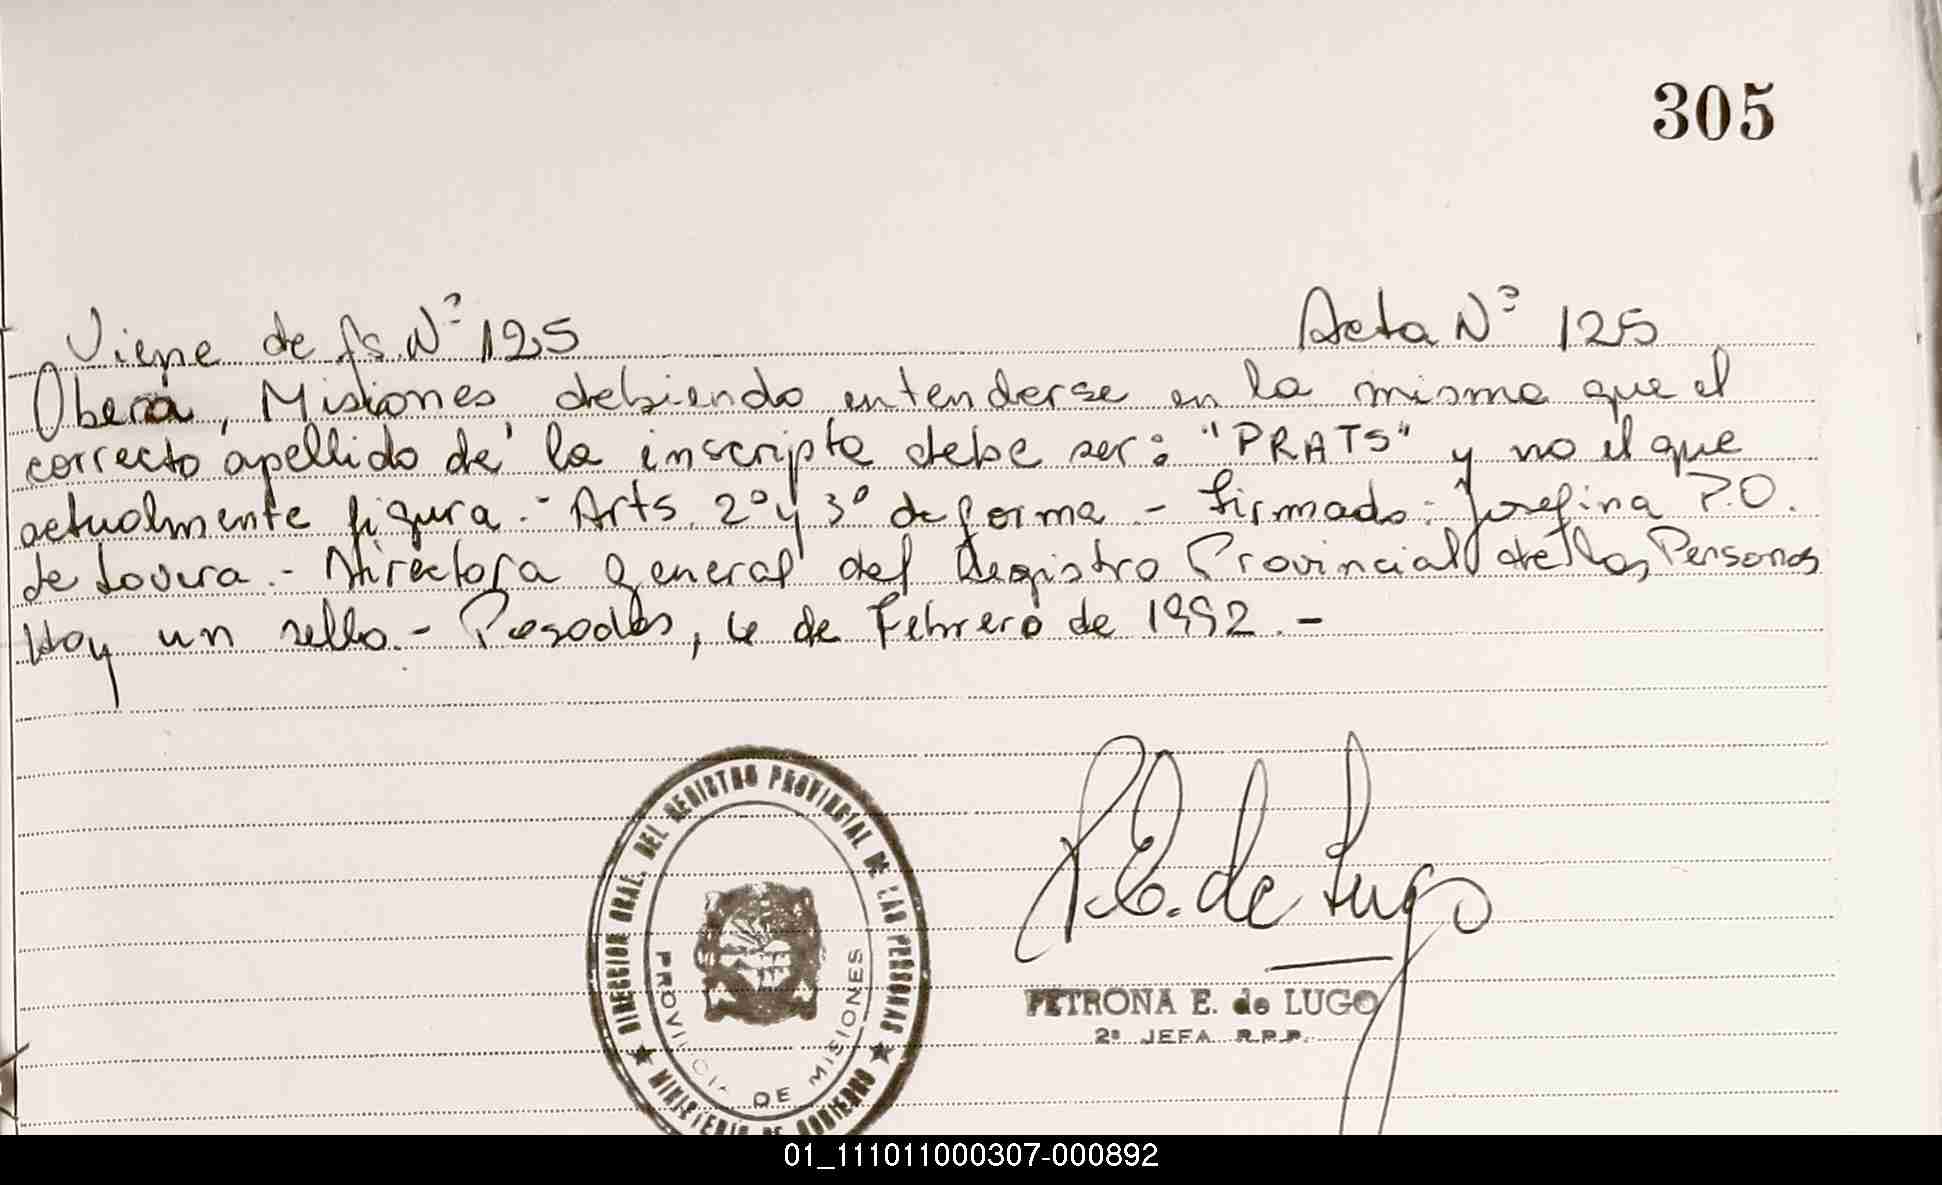 305
Viene de fs. Nº 125 Acta Nº 125
Oberá, Misiones debiendo entenderse en la misma que el
correcto apellido de la inscripta debe ser: "PRATS" y no el que
actualmente figura.- Arts. 2º y 3º de forma - firmado: Josefina P.O.
de Lovera.- Directora General del Registro Provincial de las Personas
Hay un sello.- Posadas, 4 de Febrero de 1992.-
DIRECCION GRAL. DEL REGISTRO PROVINCIAL DE LAS PERSONAS
PROVINCIA DE MISIONES
MINISTERIO DE GOBIERNO
P.E. de Lugo
PETRONA E. de LUGO
2º JEFA R.P.P.
01_111011000307-000892